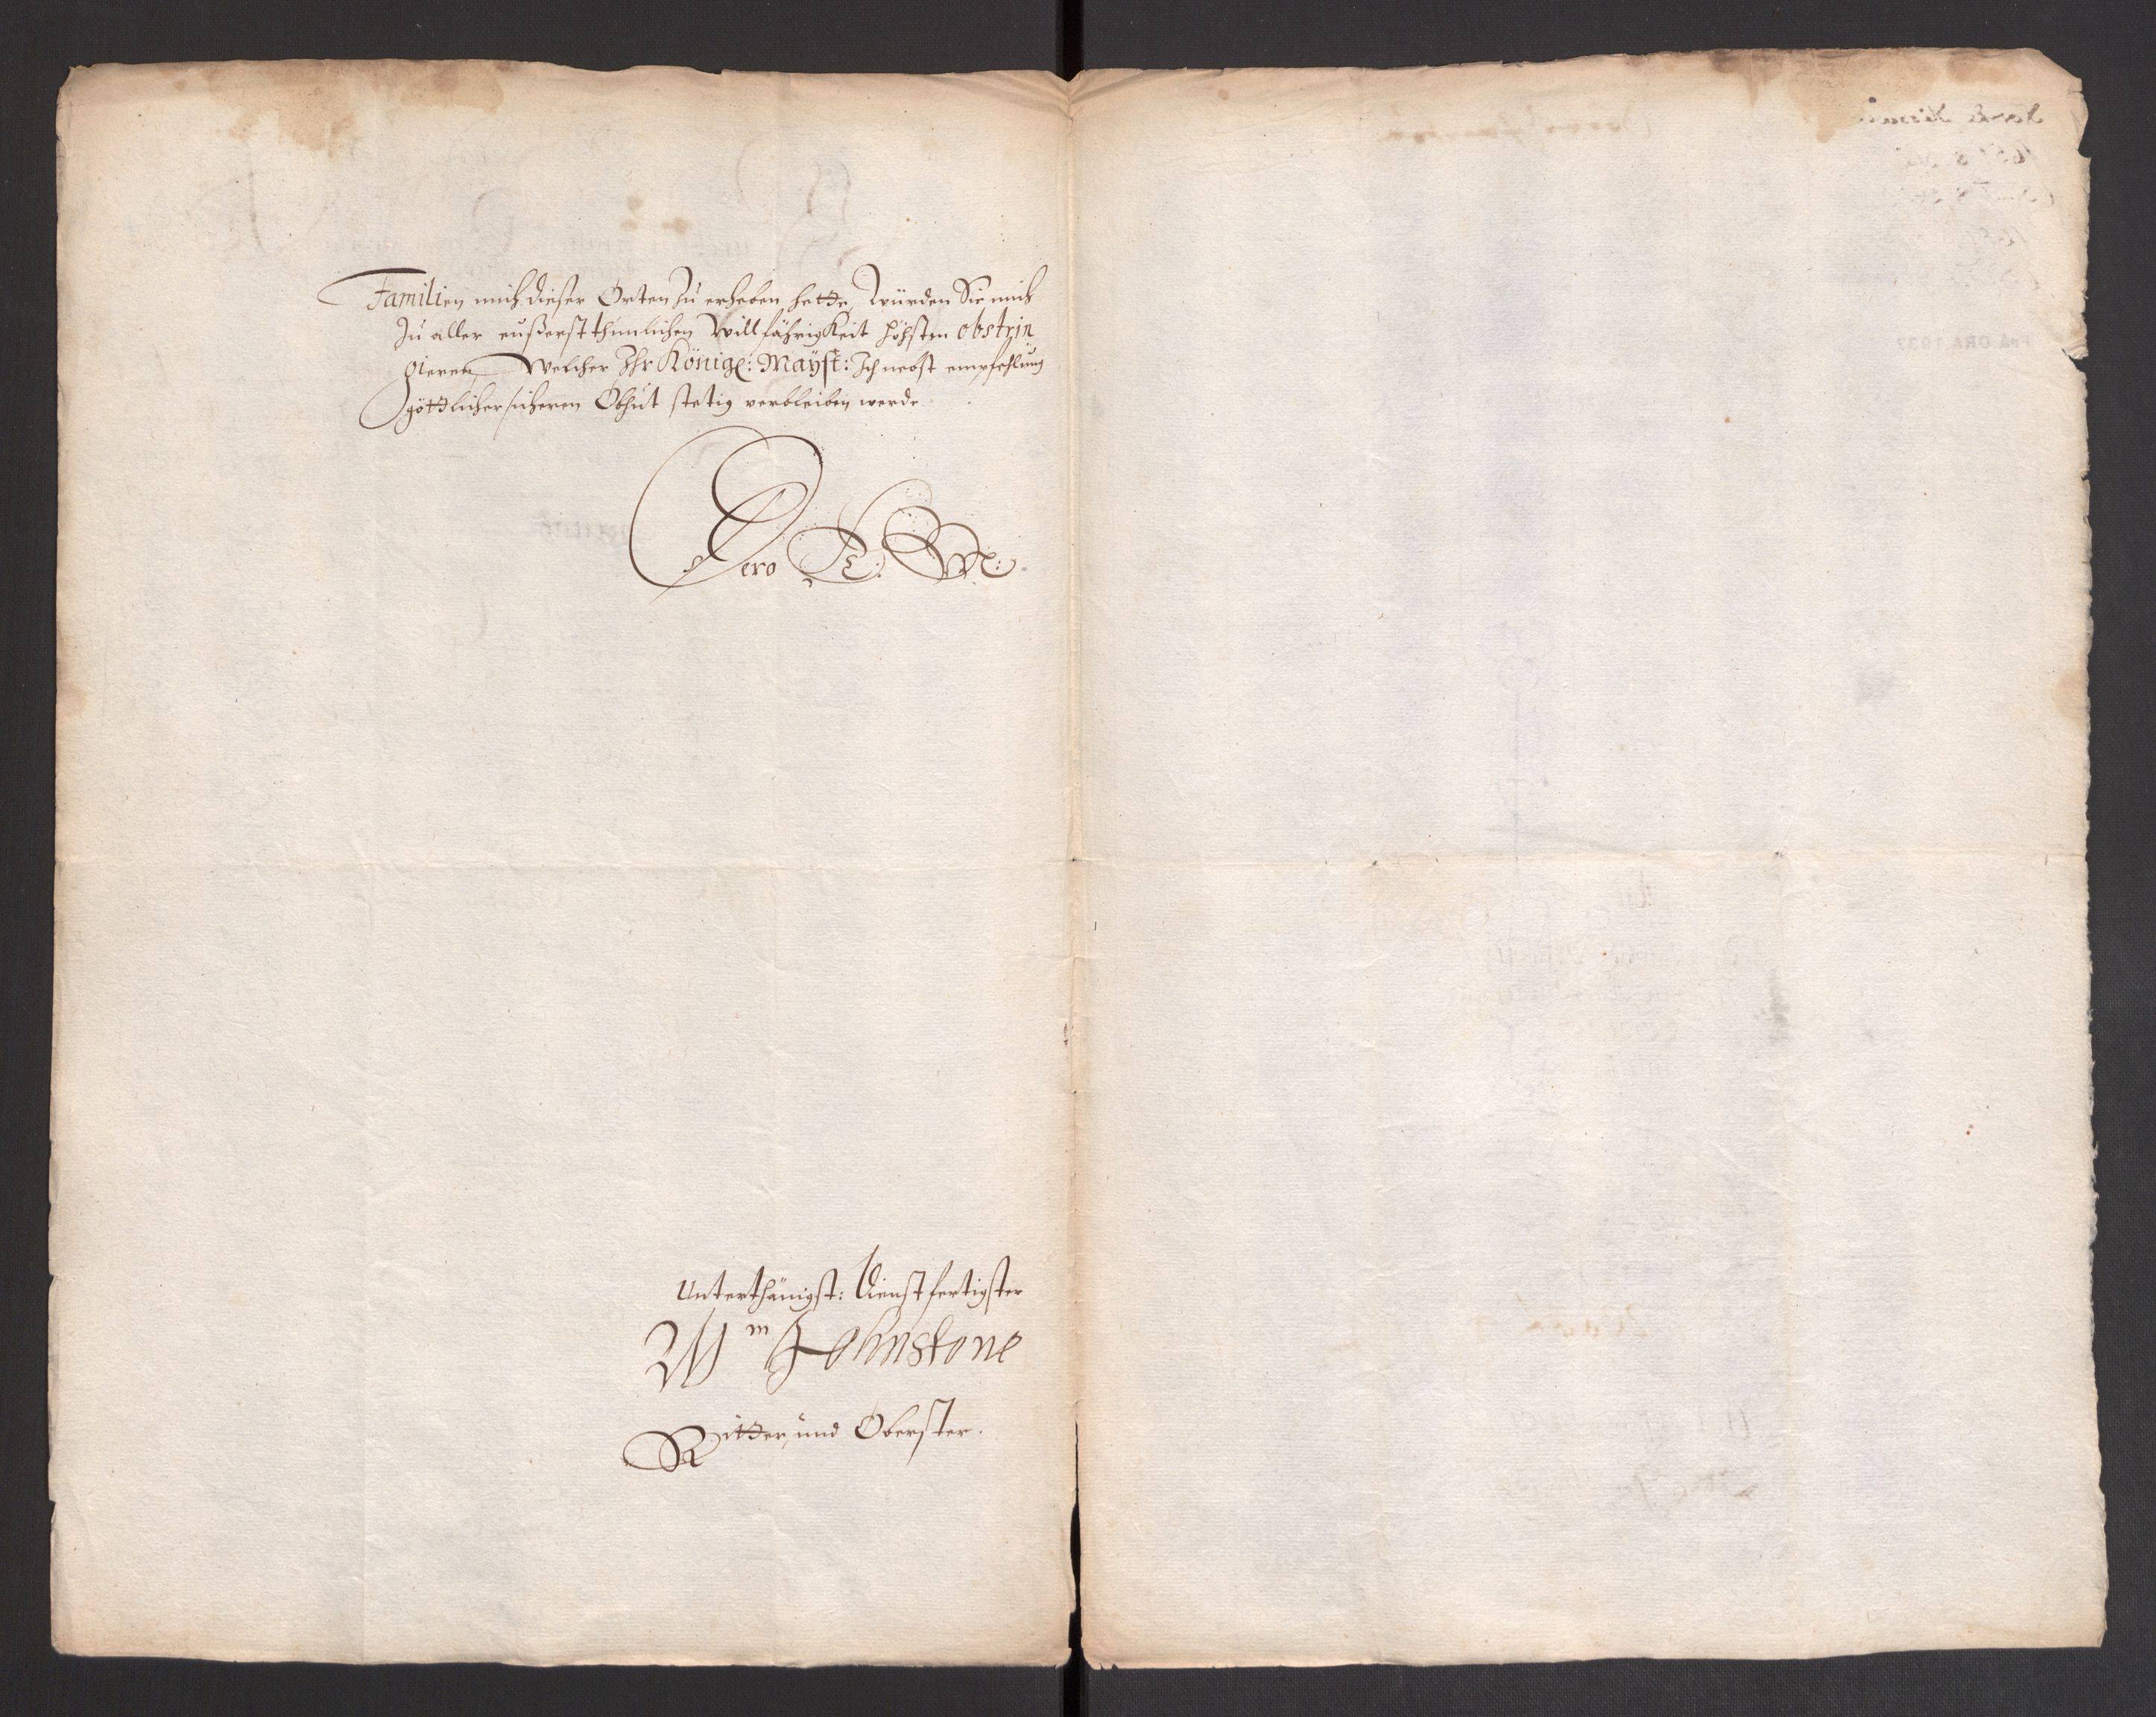 Familien mich dieser Orten zu erheben hette, würden Sie mich
zu aller eußerst thunlichen willfährigkeit höhsten obstrin
gieren, Welcher Ihr Königl: Mayst: Ich nebst empfehlung
göttlicher sicheren Obhut stetig verbleiben werde
Dero K: M:
Unterthänigst: dienstfertigster
Wm Johnstone
Ritter und Oberster.